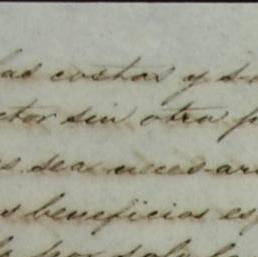 las costas y sa
ctor sin otra p
s seas necesari
s beneficios es